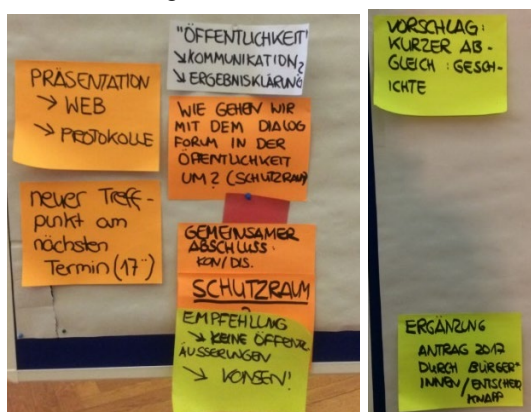 PRÄSENTATION
→ WEB
→ PROTOKOLLE
neuer Treff-
punkt am
nächsten
Termin (17°°)
"ÖFFENTLICHKEIT"
↘ KOMMUNIKATION?
↘ ERGEBNISKLÄRUNG
WIE GEHEN WIR
MIT DEM DIALOG
FORUM IN DER
ÖFENTLICHKEIT
UM? (SCHUTZRAUM
GEMEINSAMER
ABSCHLUSS:
KON/DIS.
SCHUTZRAUM
EMPFEHLUNG
↘ KEINE ÖFFENTL.
ÄUSSERUNGEN
↘ KONSEN!
VORSCHLAG:
KURZER AB-
GLEICH: GESCH-
ICHTE
ERGÄNZUNG
ANTRAG 2017
DURCH BÜRGER*
INNEN/ENTSCHEID
KNAPP